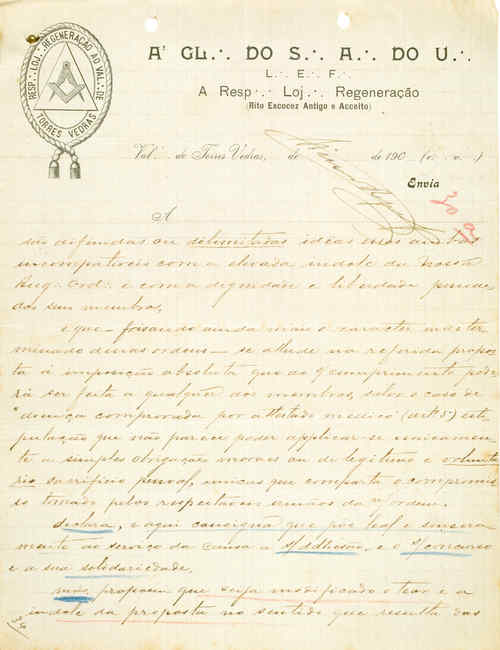 RESP∴ LOJ∴ REGENERAÇÃO AO VAL∴ DE
TORRES VEDRAS
A' GL∴ DO S∴ A∴ DO U∴
L∴ E∴ F∴
A Resp∴ Loj∴ Regeneração
(Rito Escocez Antigo e Acceito)
Val∴ de Torres Vedras, de de 190 (e∴ v∴)
Envia
A
são difundidas ou delimitadas idéas essas ambas
incompativeis com a elevada indole da nossa
Aug∴ Ord∴ e com a dignidade e liberdade
dos seus membros,
e que – frisando ainda mais o caracter
minado d'essas ordens – se allude na referida propos
ta á imposição absoluta que do cumprimento pode
rá ser feita a qualquer dos membros, salvo o caso de
"doença comprovada por attestado medico" (artº 5)
pulação que não parece poder applicar-se unicamen
te a simples obrigações moraes ou de legitimo e volunta
rio sacrificio pessoal, unicas que comporta o compromis
so tomado pelos respeitaveis irmãos da nª ordem.
Declara, e aqui consigna que põe leal e sincera
mente ao serviço da causa a sª adhesão, e o sº concurso
e a sua solidariedade,
mas, propoem que seja modificado o teor e a
indole da proposta no sentido que resulta das